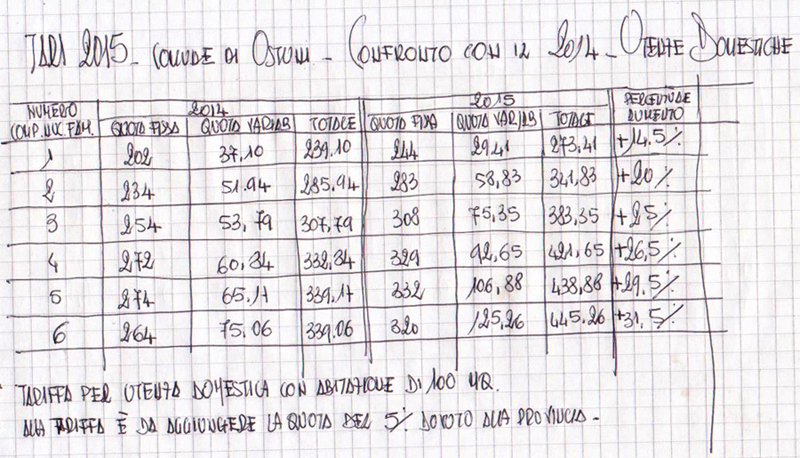 TARI 2015 - COMUNE DI OSTUNI - CONFRONTO CON IL 2014 - UTENZE DOMESTICHE
NUMERO COMP. NUC. FAM. 2014 2015 PERCENTUALE AUMENTO
QUOTA FISSA QUOTA VARIAB TOTALE QUOTA FISSA QUOTA VARIAB TOTALE
1 202 37.10 239.10 244 29.41 273,41 +14.5%
2 234 51.94 285.94 283 58,83 341,83 +20%
3 254 53,79 307,79 308 75,35 383,35 +25%
4 272 60,34 332,34 329 92,65 421,65 +26,5%
5 274 65.17 339.17 332 106,88 438,88 +29.5%
6 264 75.06 339.06 320 125,26 445.26 +31,5%
TARIFFA PER UTENZA DOMESTICA CON ABITAZIONE DI 100 MQ.
ALLA TARIFFA È DA AGGIUNGERE LA QUOTA DEL 5% DOVUTO ALLA PROVINCIA -